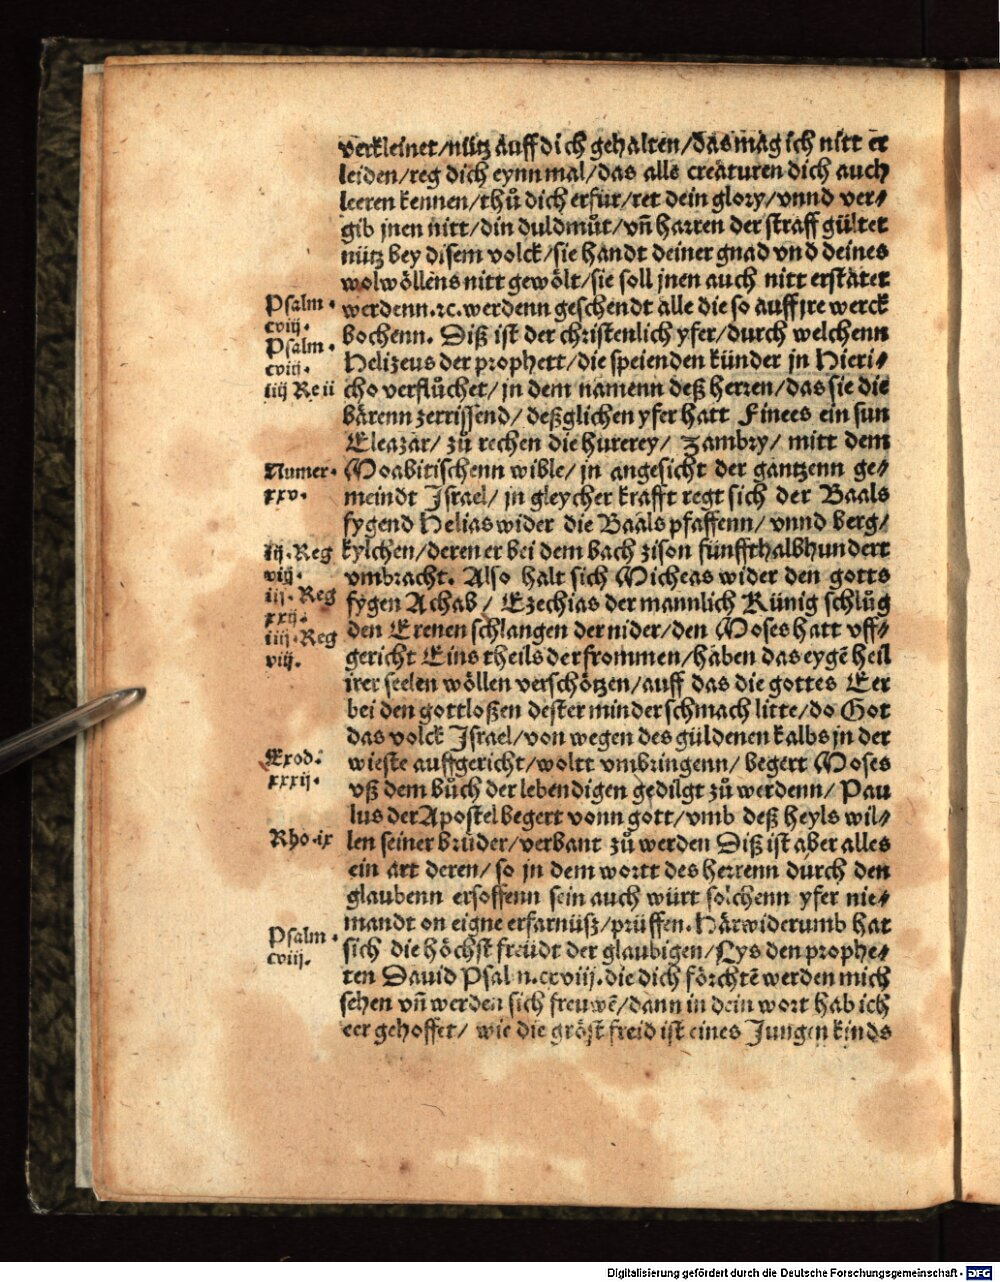 verkleinet/nütz auff dich gehalten/das mag ich nitt er
leiden/reg dich eynn mal/das alle creaturen dich auch
leeren kennen/thů dich erfür/ret dein glory/vnnd ver⸗
gib jnen nitt/din duldmůt/vñ harren der straff gültet
nütz bey disem volck/sie handt deiner gnad vnd deines
wolwöllens nitt gewölt/sie soll jnen auch nitt erstatet
Psalm
cviij.
werdenn.ꝛc.werdenn geschendt alle die so auff jre werck
bochenn. Diß ist der christenlich yfer/durch welchenn
Psalm
cviij.
Helizeus der prophett/die speienden künder jn Hieri⸗
iiij Re ii
cho verflůchet/jn dem namenn deß herren/das sie die
bärenn zerrissend/deßglichen yfer hatt Finees ein sun
Eleazar/zů rechen die hurerey/zambry/mitt dem
Numer.
xxv.
Moabitischenn wible/jn angesicht der gantzenn ge⸗
meindt Israel/jn gleycher krafft regt sich der Baals
fygend Helias wider die Baals pfaffenn/vnnd berg/
iij.Reg
viij.
kylchen/deren er bei dem bach zison fünffthalbhundert
vmbracht. Also halt sich Micheas wider den gotts
iij.Reg
xxij.
fygen Achab/Ezechias der mannlich Künig schlůg
iiij.Reg
viij.
den Erenen schlangen der nider/den Moses hatt vff⸗
gericht Eins theils der frommen/haben das eygē heil
irer seelen wöllen verschötzen/auff das die gottes Eer
bei den gottloßen dester minder schmach litte/do Got
das volck Israel/von wegen des güldenen kalbs jn der
Exod.
xxxij.
wieste auffgericht/woltt vmbringenn/begert Moses
vß dem bůch der lebendigen gedilgt zů werdenn/Pau
lus der Apostel begert vonn gott/vmb deß heyls wil⸗
Rho.ix
len seiner brüder/verbant zů werden Diß ist aber alles
ein art deren/so jn dem wortt des herrenn durch den
glaubenn ersoffenn sein auch würt solchenn yfer nie⸗
mandt on eigne erfarnüsz/prüffen.Härwiderumb hat
Psalm.
cviij.
sich die höchst freüdt der glaubigen/Lys den prophe⸗
ten Dauid Psal n.cxviij.die dich förchtē werden mich
sehen vñ werden sich freuwē/dann in dein wort hab ich
eer gehoffet/wie die gröst freid ist eines Jungen kinds
Digitalisierung gefördert durch die Deutsche Forschungsgemeinschaft - DFG